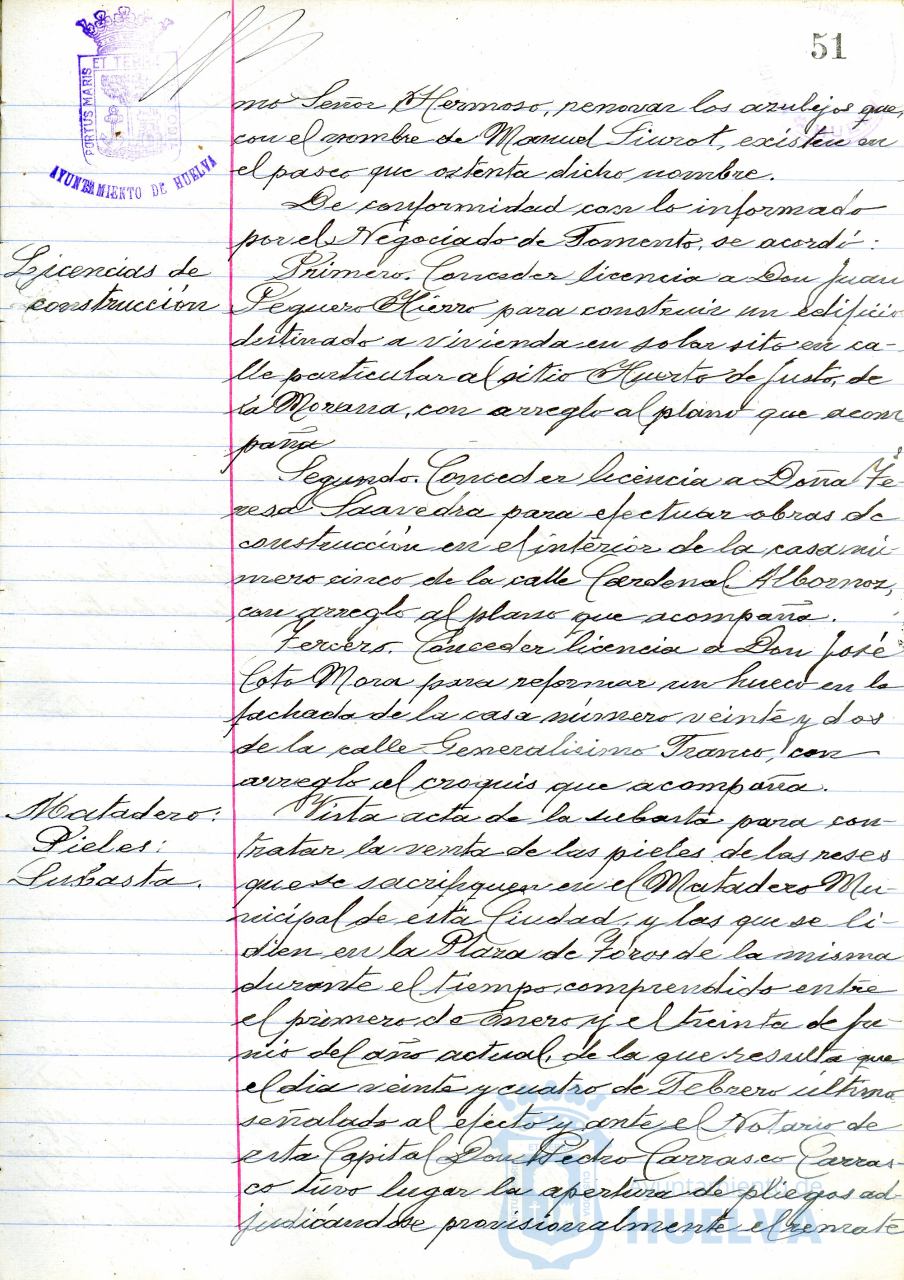 51
PORTUS MARIS
ET TERRÆ
AYUNTAMIENTO DE HUELVA
mo Señor Hermoso, renovar los azulejos que,
con el nombre de Manuel Siurot, existen en
el paseo que ostenta dicho nombre.
De conformidad con lo informado
por el Negociado de Fomento, se acordó:
Licencias de
construcción
Primero. Conceder licencia a Don Juan
Peguero Hierro para construir un edificio
destinado a vivienda en solar sito en ca-
lle particular al sitio Huerto de Justo, de
la Morana, con arreglo al plano que acom
paña
Segundo. Conceder licencia a Doña Te-
resa Saavedra para efectuar obras de
construcción en el interior de la casa nú-
mero cinco de la calle Cardenal Albornoz,
con arreglo al plano que acompaña.
Tercero. Conceder licencia a Don José
Coto Mora para reformar un hueco en la
fachada de la casa número veinte y dos
de la calle Generalísimo Franco, con
arreglo al croquis que acompaña.
Matadero:
Pieles:
Subasta.
Vista acta de la subasta para con-
tratar la venta de las pieles de las reses
que se sacrifiquen en el Matadero Mu-
nicipal de esta Ciudad, y las que se li-
dien en la Plaza de Toros de la misma
durante el tiempo comprendido entre
el primero de Enero y el treinta de Ju-
nio del año actual, de la que resulta que
el día veinte y cuatro de Febrero último
señalado al efecto y ante el Notario de
esta Capital Don Pedro Carrasco Carras-
co tuvo lugar la apertura de pliegos ad-
judicándose provisionalmente el remate
Ayuntamiento de
HUELVA